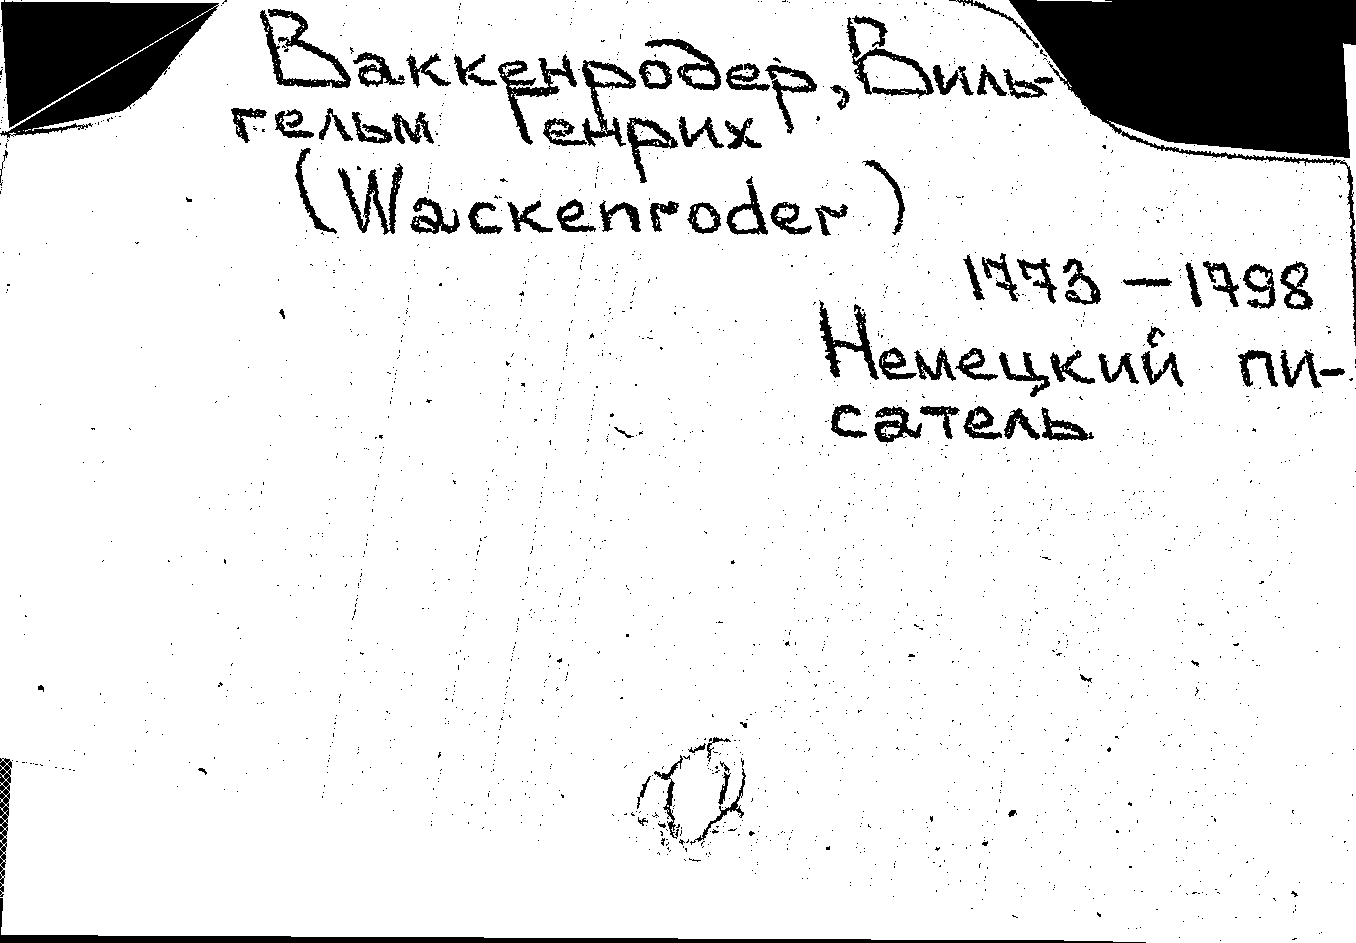 Ваккенродер, Виль-
гельм Генрих
(Wackenroder)
1773 – 1798
Немецкий пи-
сатель